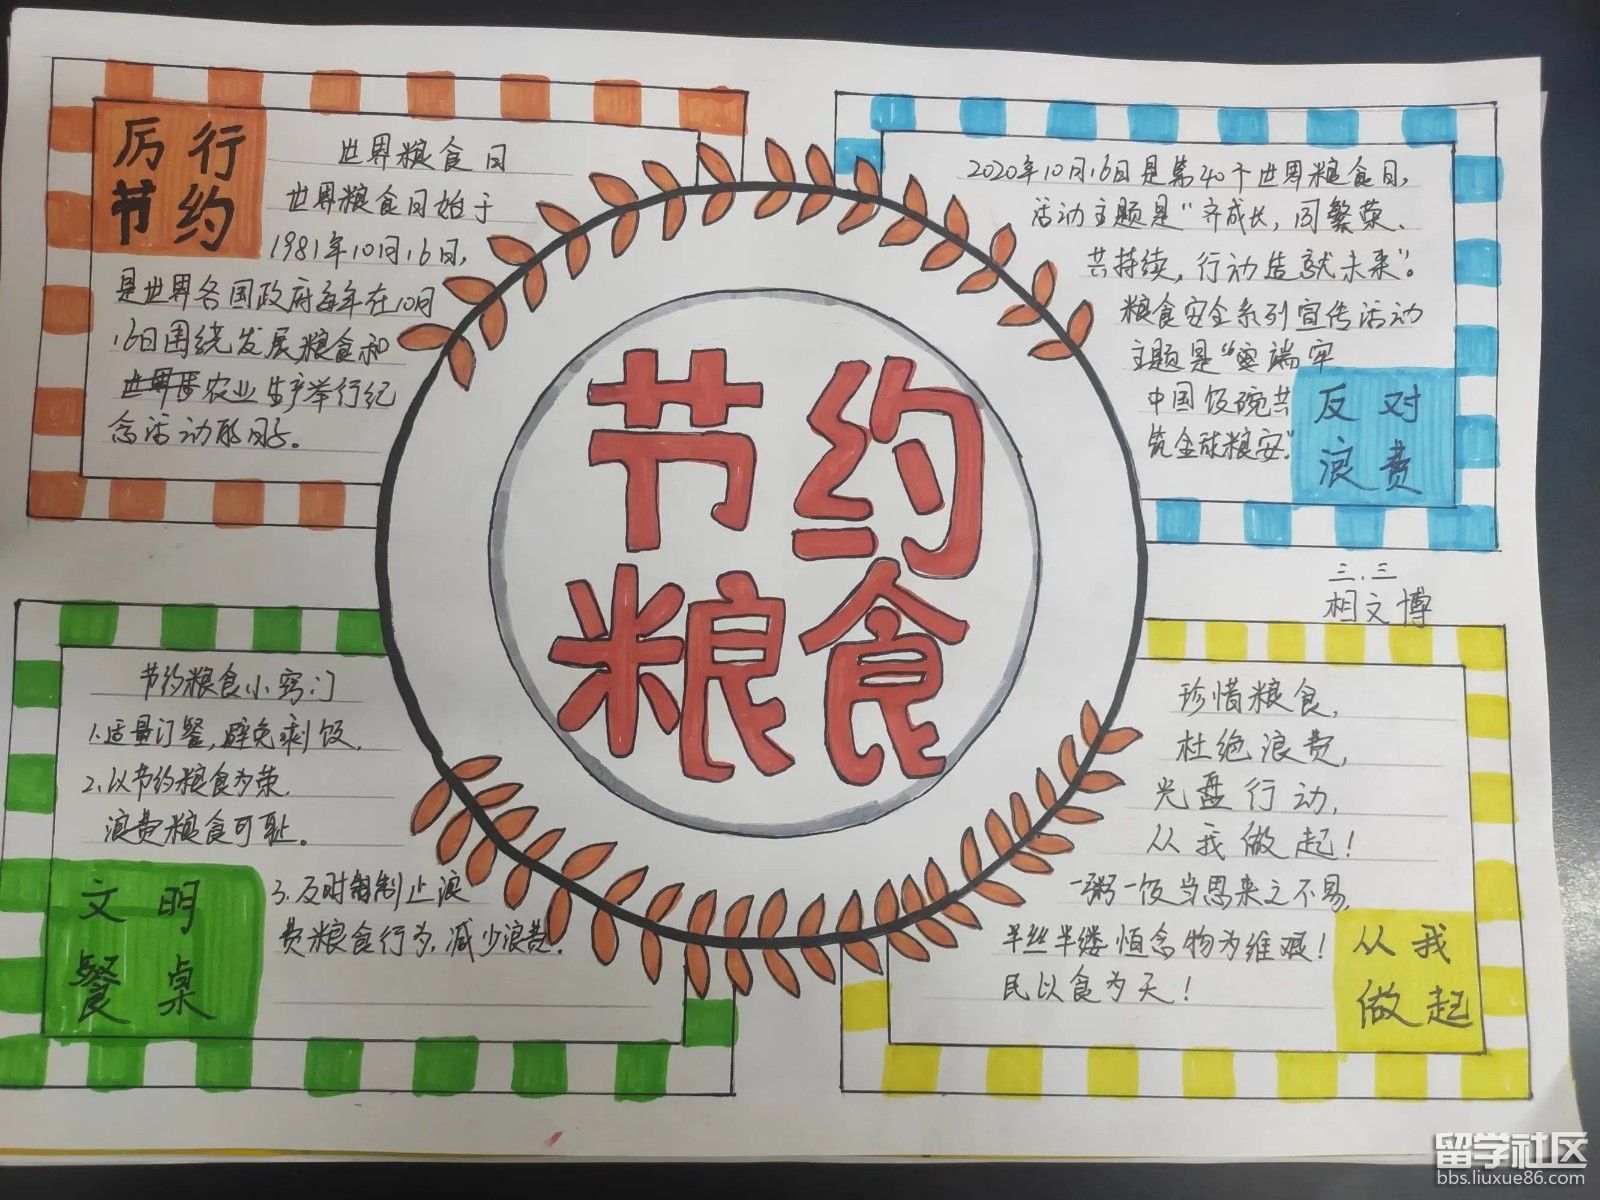 厉行
节约
世界粮食日
世界粮食日始于
1981年10月16日,
是世界各国政府每年在10月
16日围绕发展粮食和
农业生产举行纪
念活动的日子。
2020年10月16日是第40个世界粮食日,
活动主题是“齐成长,同繁荣、
共持续,行动造就未来”。
粮食安全系列宣传活动
主题是“要端牢
中国饭碗共
筑全球粮安”
反对
浪费
节约
粮食
三.三
相文博
节约粮食小窍门
1.适量订餐,避免剩饭.
2.以节约粮食为荣.
浪费粮食可耻。
3.及时制止浪
费粮食行为,减少浪费.
文明
餐桌
珍惜粮食,
杜绝浪费,
光盘行动,
从我做起!
一粥一饭当思来之不易,
半丝半缕恒念物为维艰!
民以食为天!
从我
做起
留学社区
bbs.liuxue86.com